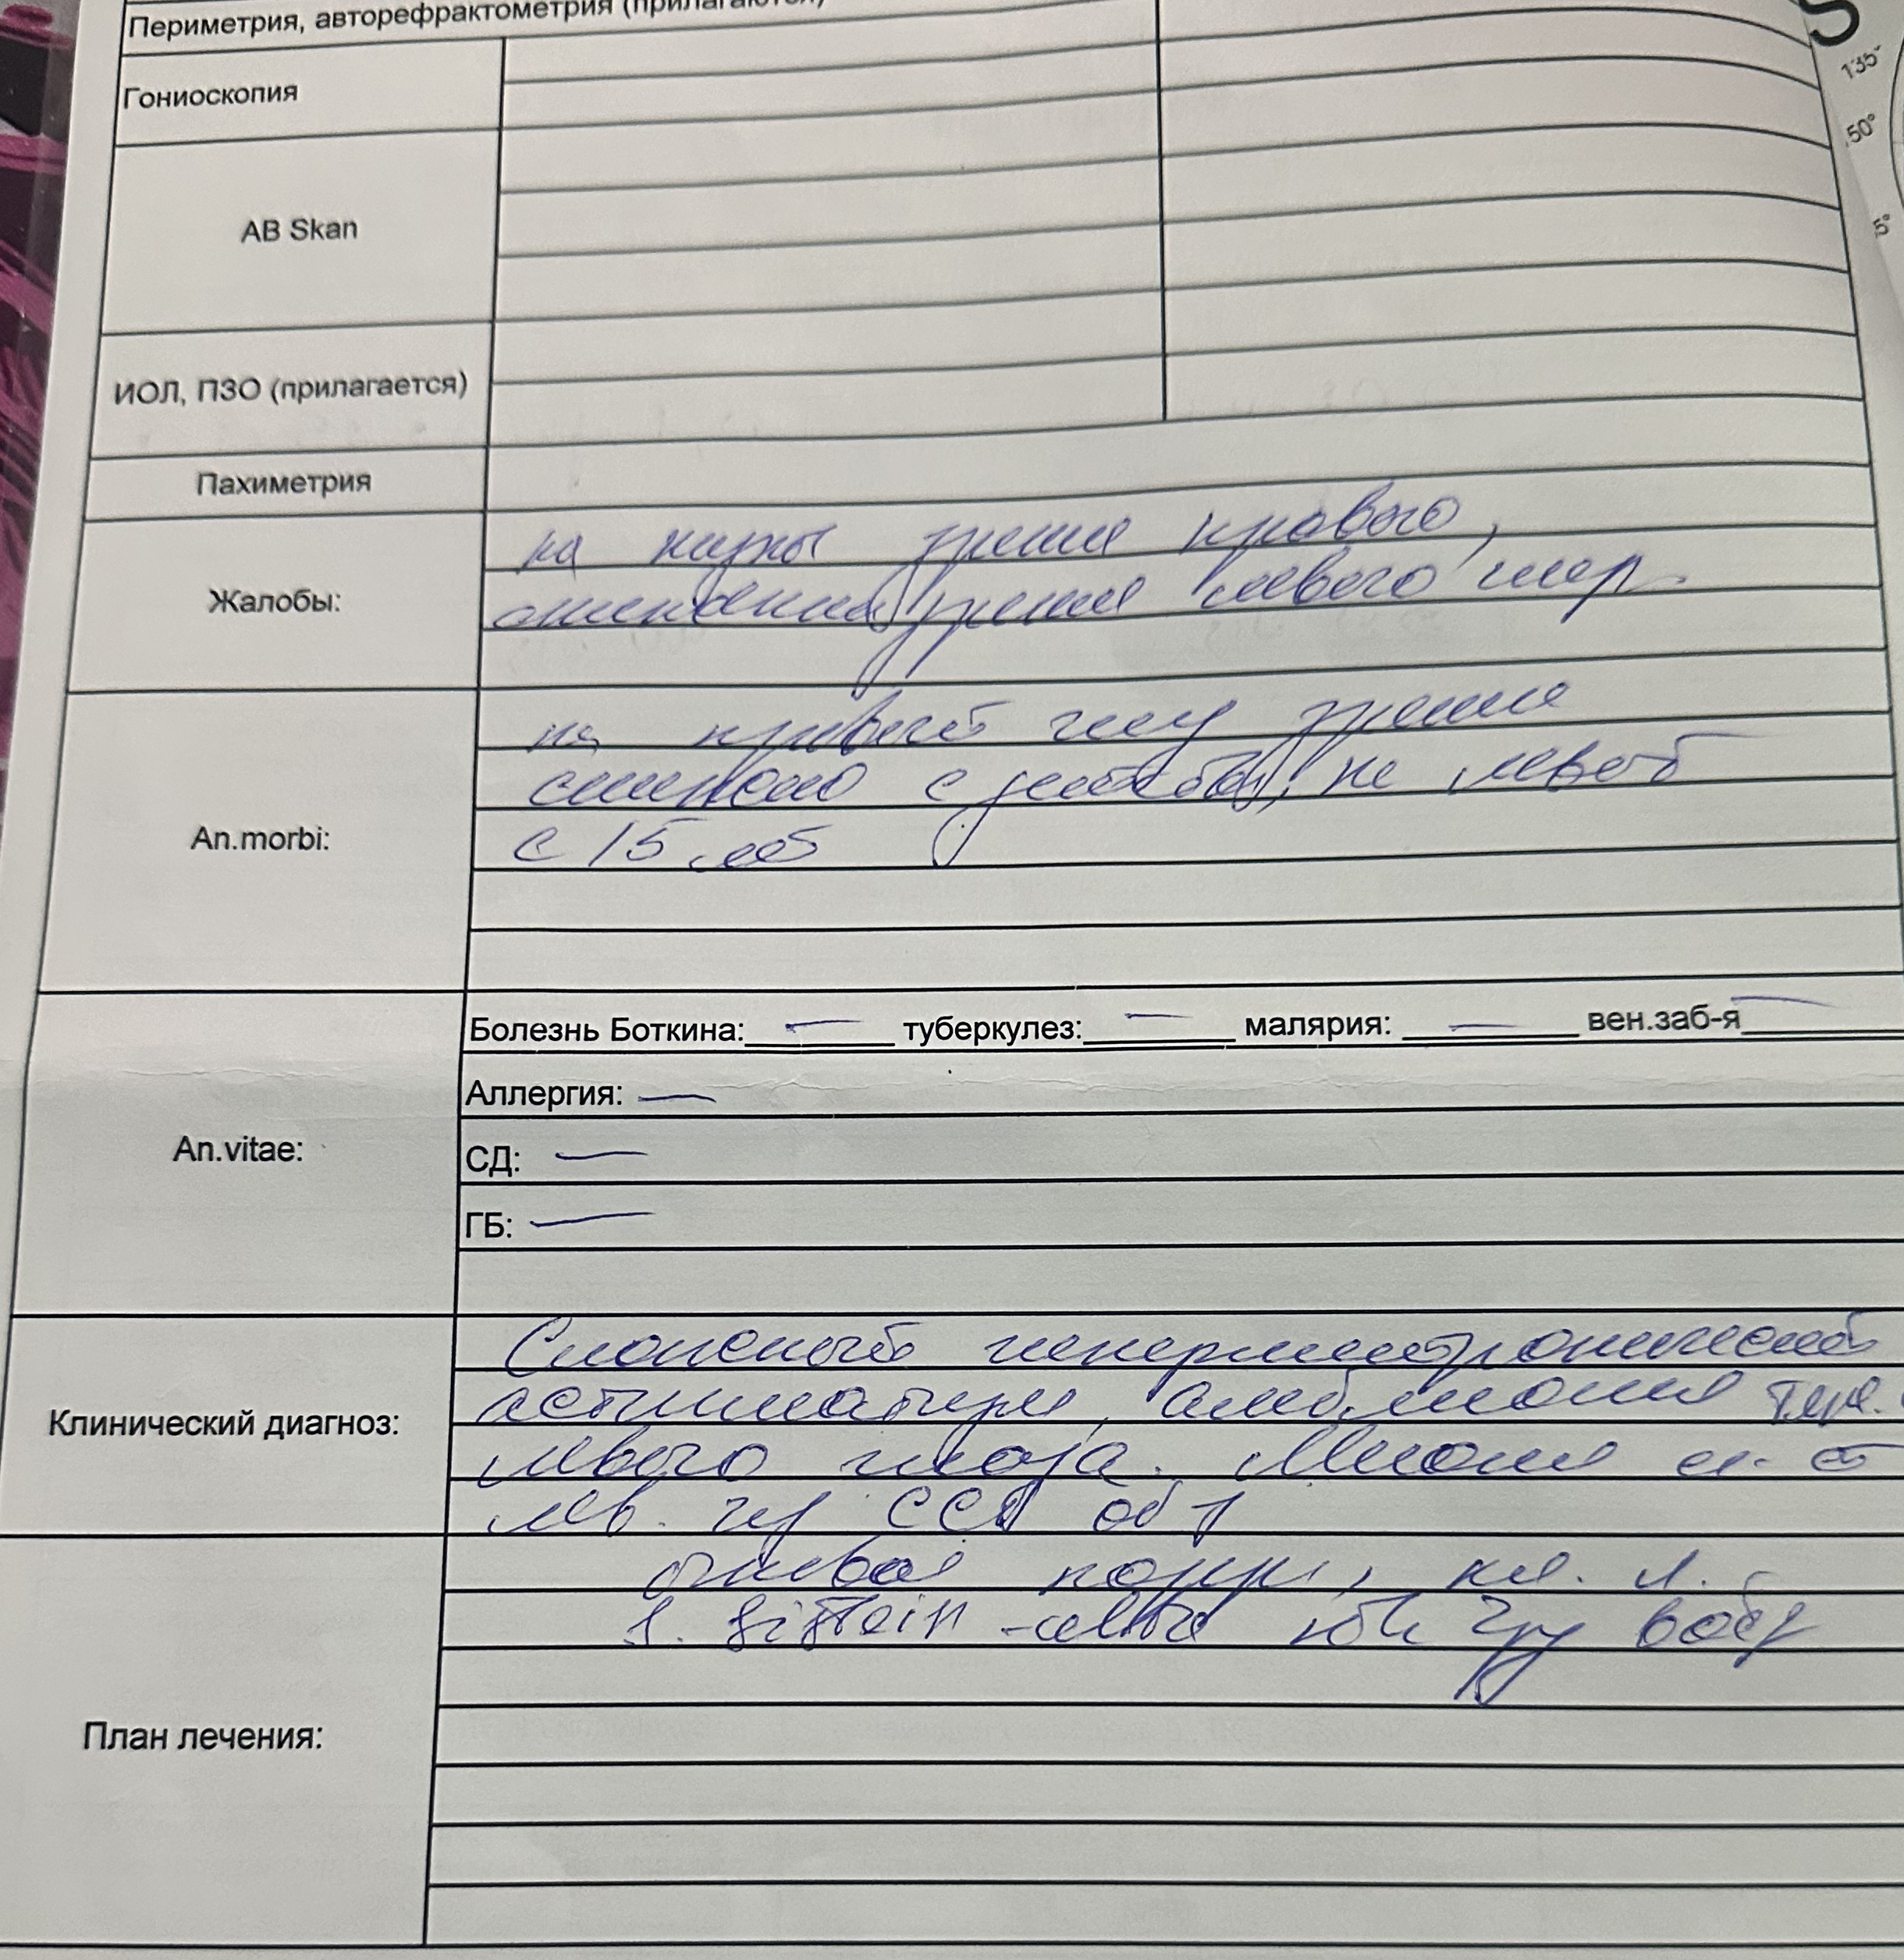 Периметрия, авторефрактометрия (прилагаются)
135°
50°
5°
Гониоскопия
AB Skan
ИОЛ, ПЗО (прилагается)
Пахиметрия
Жалобы:
на низкое зрение правого,
снижение зрения левого
An.morbi:
на правый глаз зрение
снижено с детства, на левый
с 15 лет
An.vitae:
Болезнь Боткина: — туберкулез: — малярия: — вен.заб-я —
Аллергия: —
СД: —
ГБ: —
Клинический диагноз:
Сложный гиперметропический
астигматизм, амблиопия тяж.
левого глаза. Миопия
лв. гл ССГ
План лечения:
очковая корр, кл. л.
S.